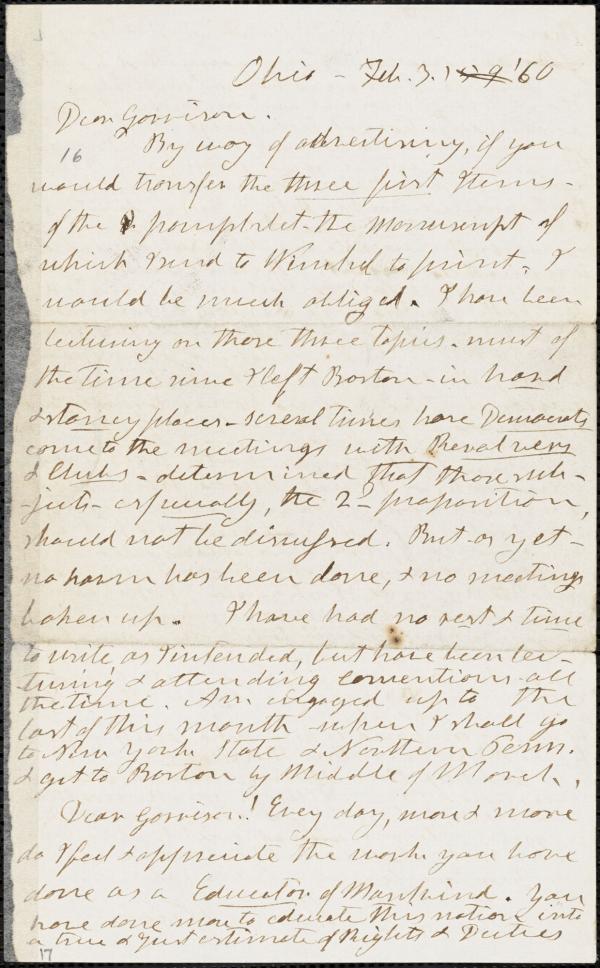 Ohio - Feb. 3. 1859 '60
Dear Garrison.
16
By way of advertising, if you
would transfer the three first Items -
of the pamphlet - the Manuscript of
which I send to Kimbal to print, I
would be much obliged. I have been
lecturing on those three topics - most of
the time since I left Boston - in hard
& stoney places - several times have Democrats
come to the meetings with Revolvers
& Clubs - determined that those sub-
-jects - especially, the 2d proposition,
should not be discussed. But as yet -
no harm has been done, & no meetings
broken up. I have had no rest & time
to write as I intended, but have been lec-
turing & attending conventions all
the time. Am engaged up to the
last of this month - when I shall go
to New York State & Northern Penn.
& get to Boston by Middle of March.
Dear Garrison! Every day, more & more
do I feel & appreciate the work you have
done as a Educator of Mankind. You
have done more to educate this nation into
a true & just estimate of Rights & Duties
17